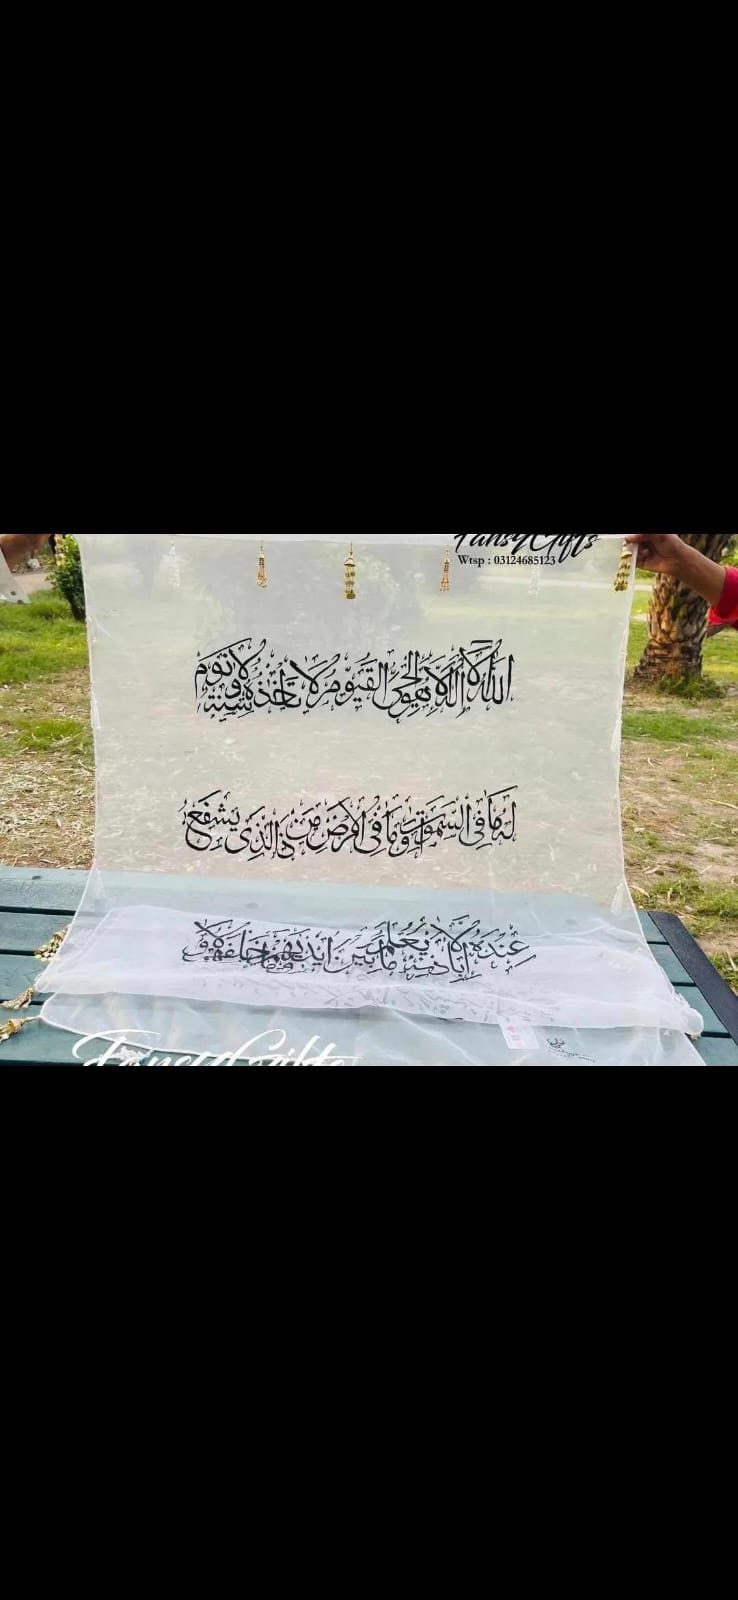 Fansy Gifts
Wtsp : 03124685123
اللَّهُ لَا إِلَٰهَ إِلَّا هُوَ الْحَيُّ الْقَيُّومُ لَا تَأْخُذُهُ سِنَةٌ وَلَا نَوْمٌ
لَهُ مَا فِي السَّمَٰوَاتِ وَمَا فِي الْأَرْضِ مَنْ ذَا الَّذِي يَشْفَعُ
عِنْدَهُ إِلَّا بِإِذْنِهِ يَعْلَمُ مَا بَيْنَ أَيْدِيهِمْ وَمَا خَلْفَهُمْ وَلَا
Fansy Gifts